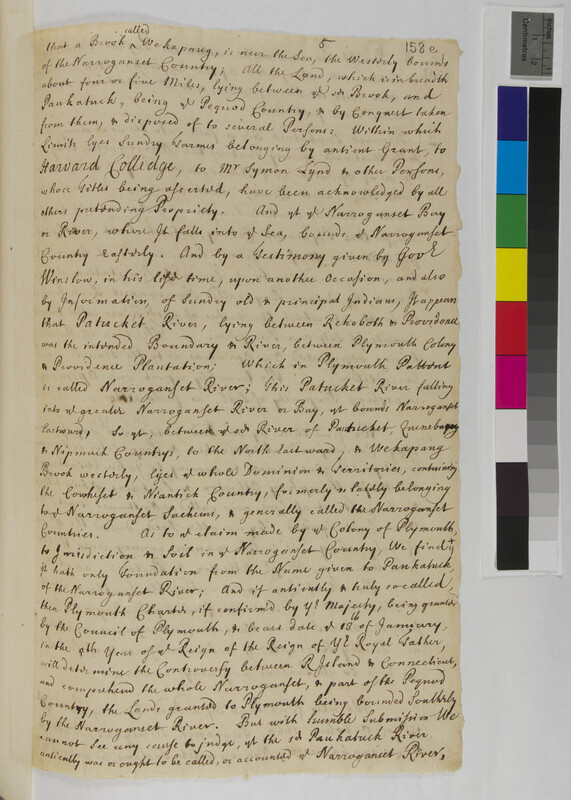 5
158e
that a Brook called Wekapaug, is near the Sea, the Westerly bounds
of the Narroganset Country; All the Land, which is in breadth
about four or five Miles, lying between ye sd Brook, and
Paukatuck, being ye Pequod Country, & by Conquest taken
from them, & disposed of to several Persons: Within which
Limits lyes Sundry Farmes belonging by antient Grant, to
Harvard Colledge, to Mr Symon Lynd & other Persons,
whose Titles being asserted, have been acknowledged by all
others pretending Propriety. And yt ye Narroganset Bay
or River, where It falls into ye Sea, bounds ye Narroganset
Country Easterly. And by a Testimony given by Govr
Winslow, in his life time, upon another Occasion, and also
by Information, of Sundry old & principal Indians, It appears
that Patucket River, lying between Rehoboth & Providence
was the intended Boundary & River, between Plymouth Colony
& Providence Plantation; Which in Plymouth Pattent
is called Narroganset River; This Patucket River falling
into ye greater Narroganset River or Bay, yt bounds Narroganset
Eastward, So yt, between ye sd River of Pautucket, Quenebaug
& Nipmuck Countrys, to the North Eastward, & Wekapaug
Brook westerly, lyes ye whole Dominion & Territories, containing
the Cowheset & Niantick Country, formerly & lately belonging
to ye Narroganset Sachems, & generally called the Narroganset
Countries. As to ye claim made by ye Colony of Plymouth,
to Jurisdiction & Soil in ye Narroganset Country, We find yt
it hath only Foundation from the Name given to Paukatuck,
of the Narroganset River; And if antiently & truly so called
then Plymouth Charter, if confirm'd by Yr Majesty, being granted
by the Council of Plymouth, & bears date ye 13th of January,
in the 5th Year of ye Reign of the Reign of Yr Royal Father,
will determine the Controversy between R. Island & Connecticut,
and comprehend the whole Narroganset, & part of the Pequod
Country, the Lands granted to Plymouth being bounded Southerly
by the Narroganset River. But with humble Submission We
cannot See any cause to judge, yt the sd Paukatuck River
antiently was or ought to be called, or accounted ye Narroganset River,
Centimetres